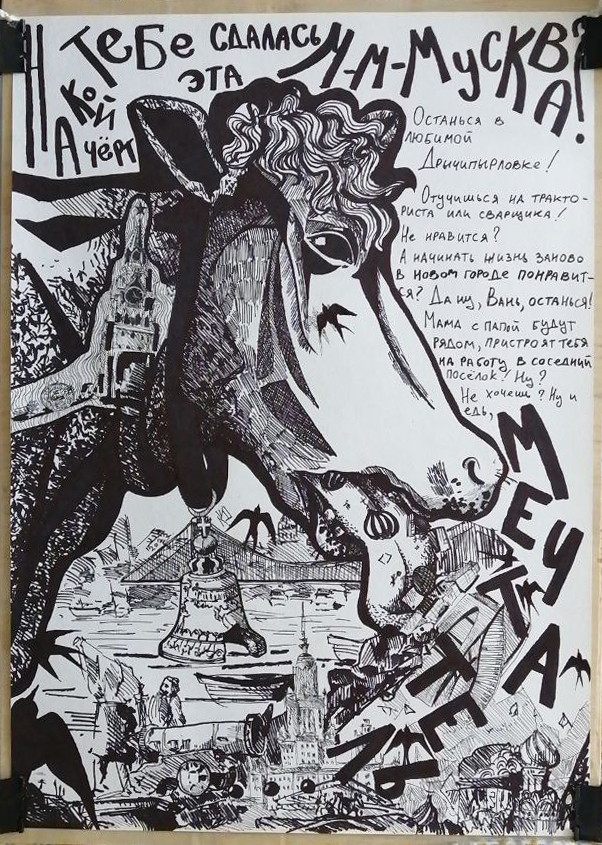 НА
КОЙ
ЧЁРТ
ТЕБЕ СДАЛАСЬ
ЭТА
М-М-МУСКВА?!
Останься в
любимой
Дрычипырловке!
Отучишься на тракто-
риста или сварщика!
Не нравится?
А начинать жизнь заново
в новом городе понравит-
ся? Да ну, Вань, останься!
Мама с папой будут
рядом, пристроят тебя
на работу в соседний
посёлок! Ну?
Не хочешь? Ну и
едь,
МЕЧТА
ТЕЛЬ